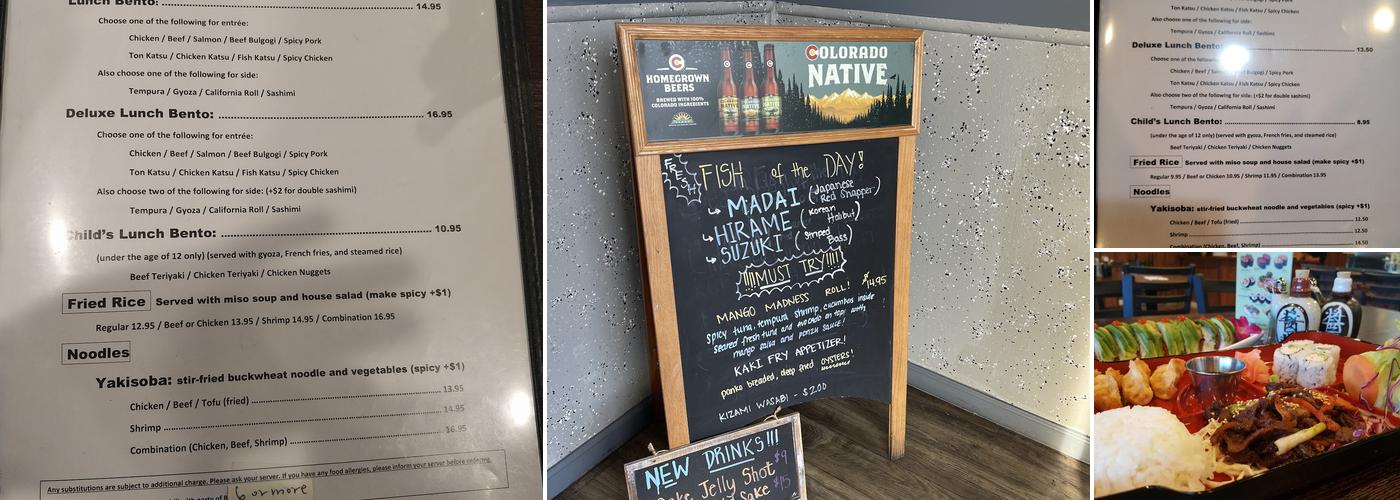 Lunch Bento: 14.95
Choose one of the following for entrée:
Chicken / Beef / Salmon / Beef Bulgogi / Spicy Pork
Ton Katsu / Chicken Katsu / Fish Katsu / Spicy Chicken
Also choose one of the following for side:
Tempura / Gyoza / California Roll / Sashimi
Deluxe Lunch Bento: 16.95
Choose one of the following for entrée:
Chicken / Beef / Salmon / Beef Bulgogi / Spicy Pork
Ton Katsu / Chicken Katsu / Fish Katsu / Spicy Chicken
Also choose two of the following for side: (+$2 for double sashimi)
Tempura / Gyoza / California Roll / Sashimi
Child's Lunch Bento: 10.95
(under the age of 12 only) (served with gyoza, French fries, and steamed rice)
Beef Teriyaki / Chicken Teriyaki / Chicken Nuggets
Fried Rice Served with miso soup and house salad (make spicy +$1)
Regular 12.95 / Beef or Chicken 13.95 / Shrimp 14.95 / Combination 16.95
Noodles
Yakisoba: stir-fried buckwheat noodle and vegetables (spicy +$1)
Chicken / Beef / Tofu (fried) 13.95
Shrimp 14.95
Combination (Chicken, Beef, Shrimp) 16.95
Any substitutions are subject to additional charge. Please ask your server. If you have any food allergies, please inform your server before ordering.
6 or more
HOMEGROWN
BEERS
BREWED WITH 100%
COLORADO INGREDIENTS
COLORADO
NATIVE
FRESH
FISH of the DAY!
MADAI (Japanese Red Snapper)
HIRAME (Korean Halibut)
SUZUKI (Striped Bass)
!!!!MUST TRY!!!!
MANGO MADNESS ROLL! $14.95
spicy tuna, tempura shrimp, cucumbers inside
seared fresh tuna and avocado on top with
mango salsa and ponzu sauce!
KAKI FRY APPETIZER!
panko breaded, deep fried OYSTERS!
KIZAMI WASABI - $2.00
NEW DRINKS!!!
Jelly Shot $9
Sake $15
Ton Katsu / Chicken Katsu / Fish Katsu / Spicy Chicken
Also choose one of the following for side:
Tempura / Gyoza / California Roll / Sashimi
Deluxe Lunch Bento 13.50
Chicken / Beef / Bulgogi / Spicy Pork
Ton Katsu / Chicken Katsu / Fish Katsu / Spicy Chicken
Also choose two of the following for side: (+$2 for double sashimi)
Tempura / Gyoza / California Roll / Sashimi
Child's Lunch Bento: 8.95
(under the age of 12 only) (served with gyoza, French fries, and steamed rice)
Beef Teriyaki / Chicken Teriyaki / Chicken Nuggets
Fried Rice Served with miso soup and house salad (make spicy +$1)
Regular 9.95 / Beef or Chicken 10.95 / Shrimp 11.95 / Combination 13.95
Noodles
Yakisoba: stir-fried buckwheat noodle and vegetables (spicy +$1)
Chicken / Beef / Tofu (fried) 11.50
Shrimp 12.50
Combination (Chicken, Beef, Shrimp) 14.50